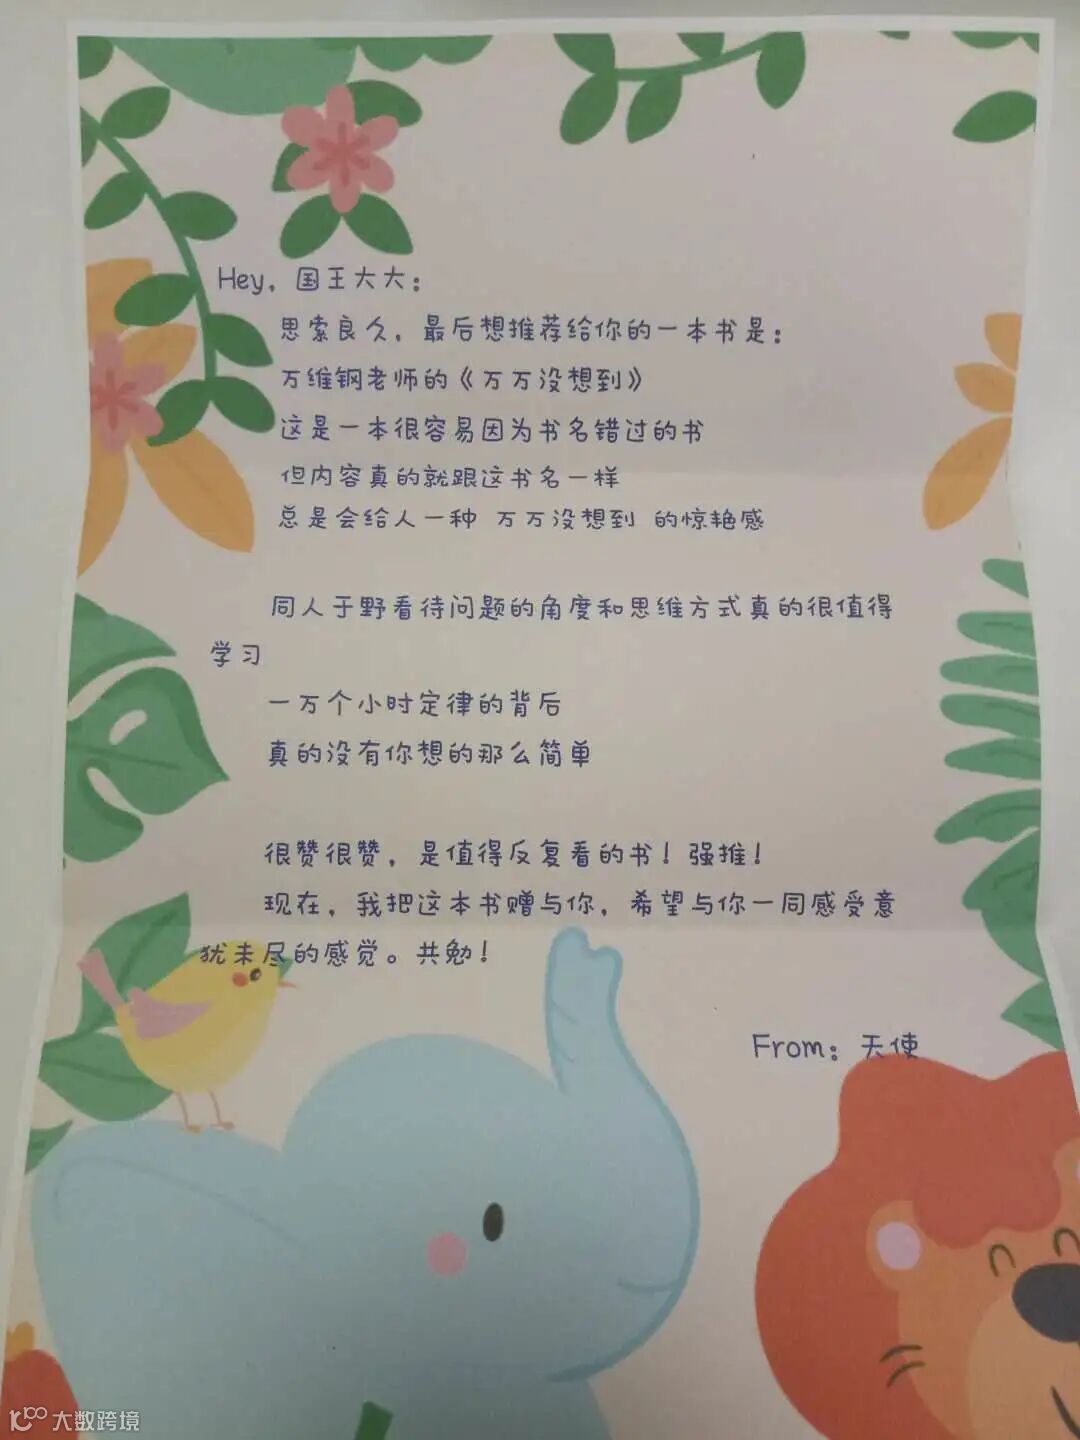 Hey，国王大大：
思索良久，最后想推荐给你的一本书是：
万维钢老师的《万万没想到》
这是一本很容易因为书名错过的书
但内容真的就跟这书名一样
总是会给人一种 万万没想到 的惊艳感
同人于野看待问题的角度和思维方式真的很值得
学习
一万个小时定律的背后
真的没有你想的那么简单
很赞很赞，是值得反复看的书！强推！
现在，我把这本书赠与你，希望与你一同感受意
犹未尽的感觉。共勉！
From：天使
大数跨境